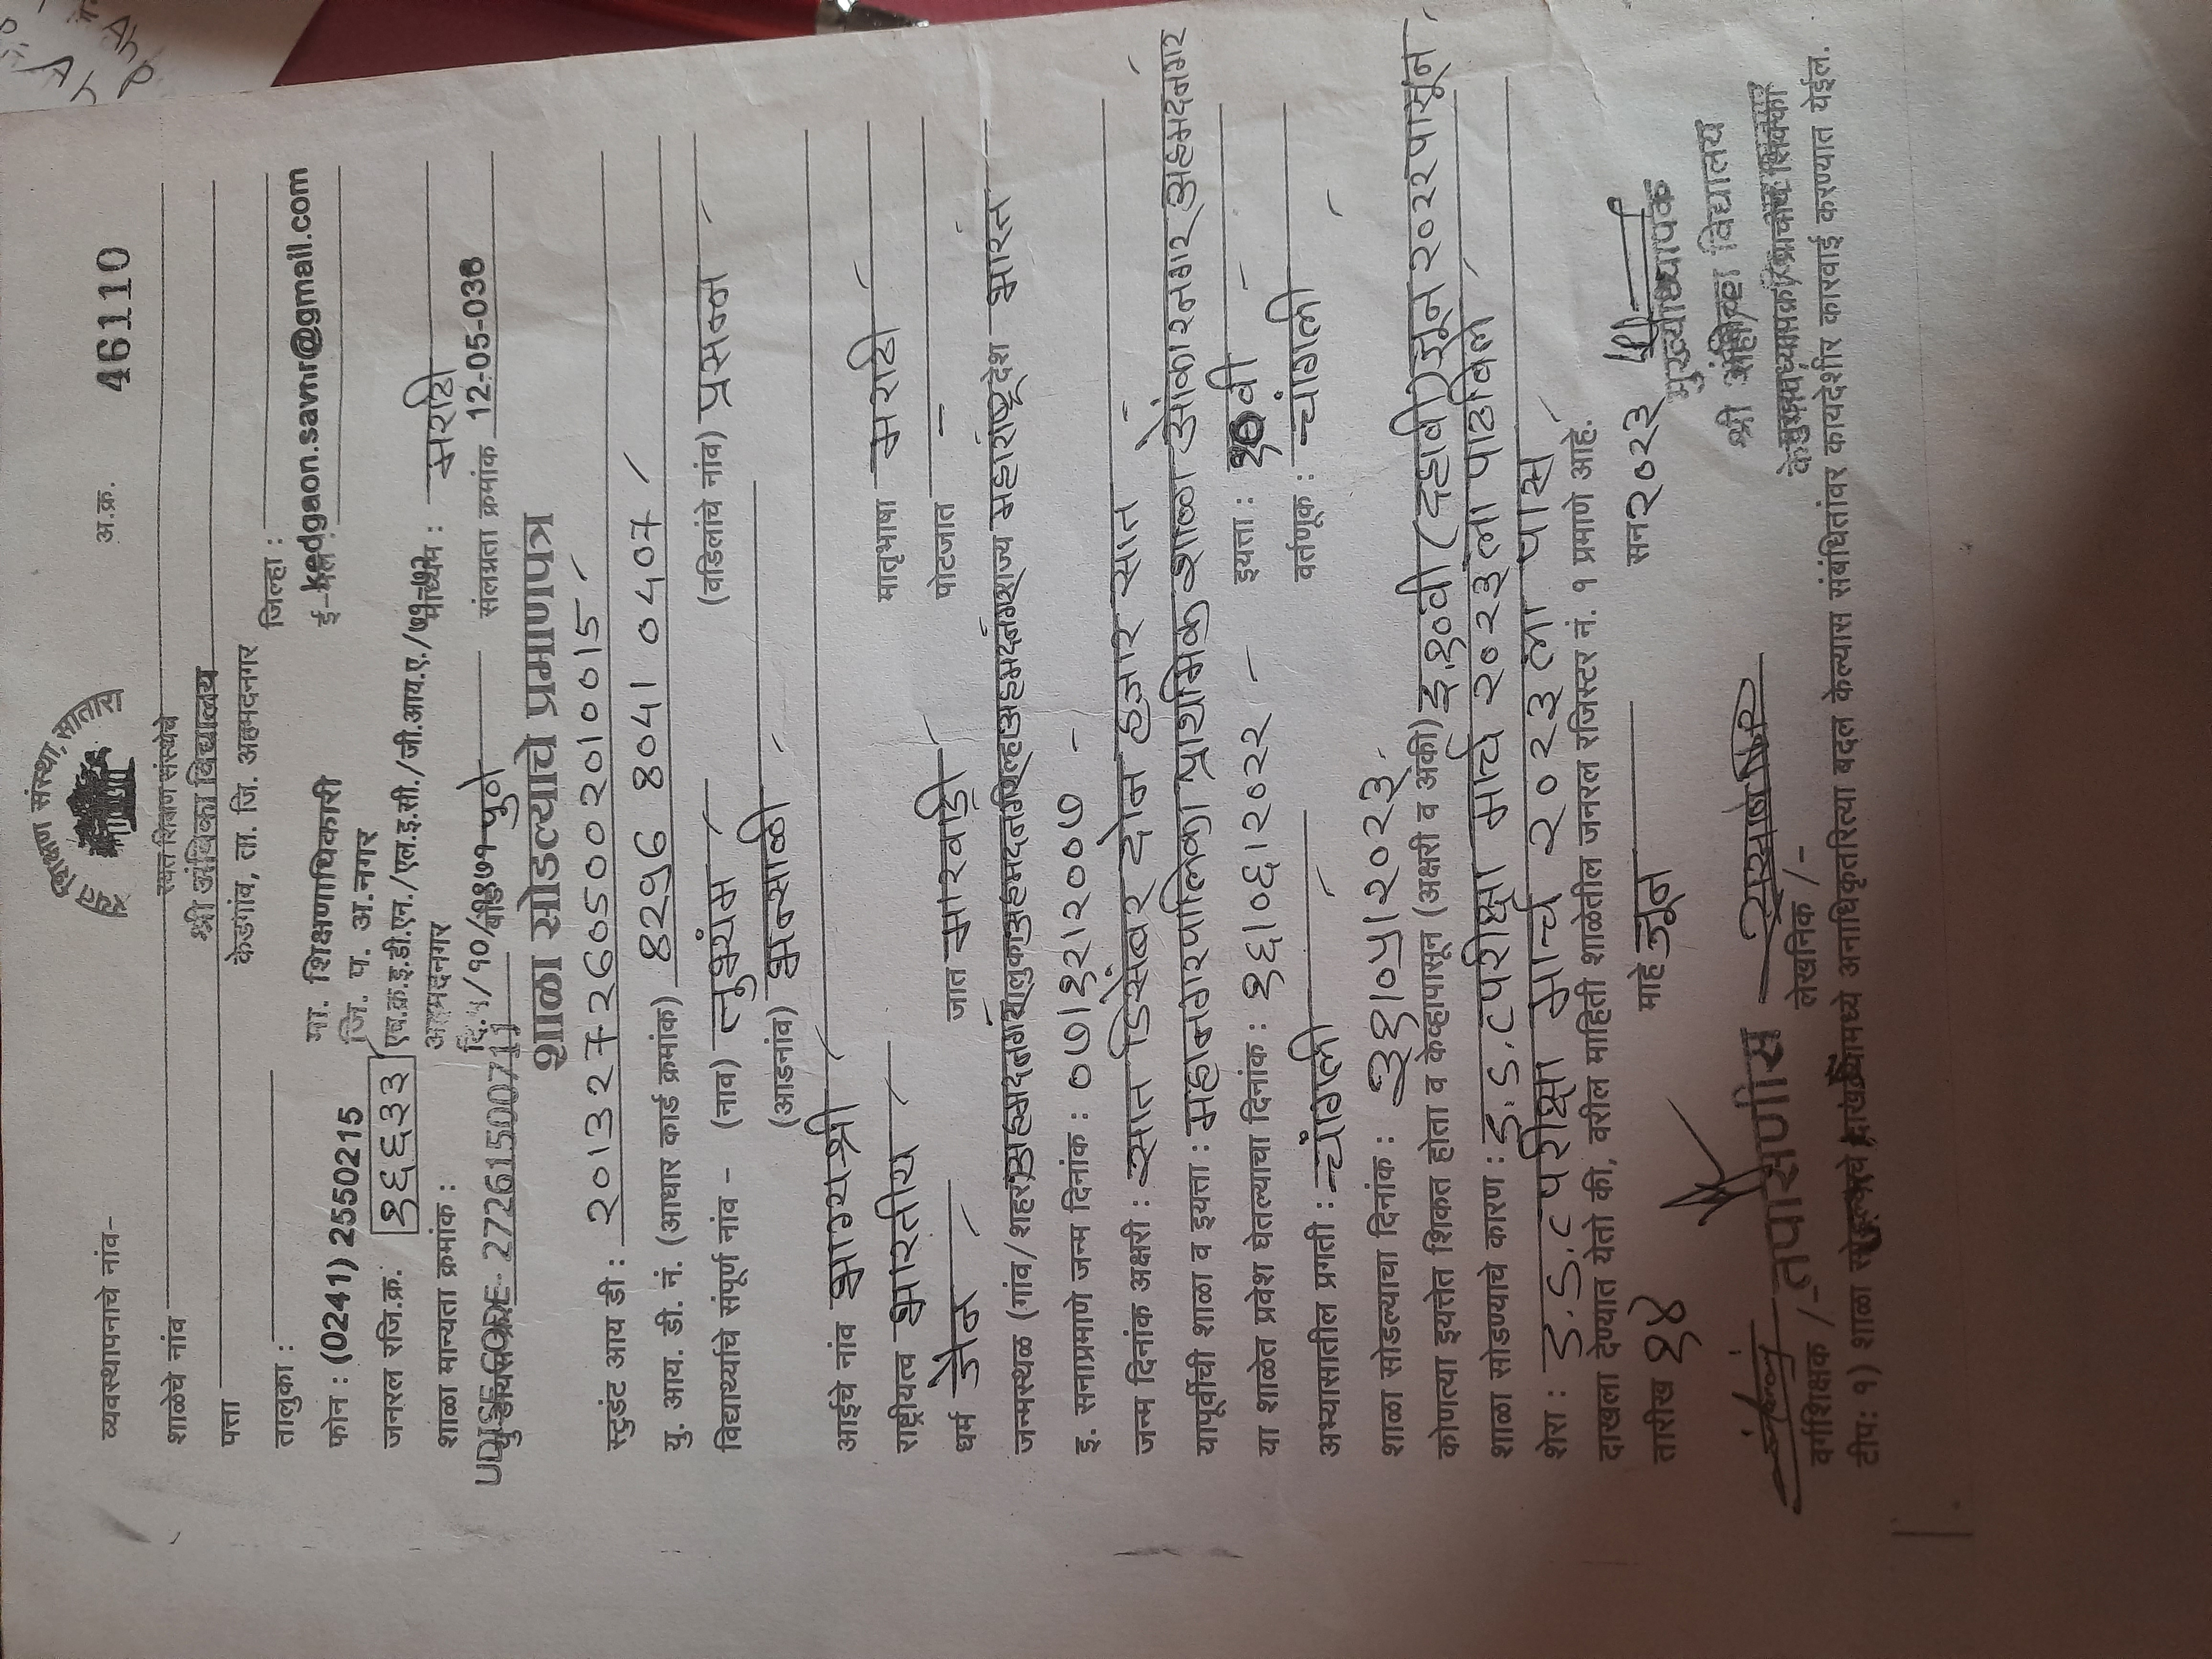 शिक्षण संस्था, सातारा
व्यवस्थापनाचे नांव- अ.क्र. 46110
रयत शिक्षण संस्थेचे
शाळेचे नांव श्री अंबिका विद्यालय
पत्ता केडगांव, ता. जि. अहमदनगर
तालुका : जिल्हा :
मा. शिक्षणाधिकारी
फोन : (0241) 2550215 जि. प. अ.नगर kedgaon.savnr@gmail.com
जनरल रजि.क्र. १६६३३ माध्यम : मराठी
शाळा मान्यता क्रमांक : अहमदनगर
UDISE CODE- 27261500711 संलग्नता क्रमांक 12-05-038
शाळा सोडल्याचे प्रमाणपत्र
स्टुडंट आय डी : २०१३२७२६०५००२०१००१५
यु. आय. डी. नं. (आधार कार्ड क्रमांक) ८२९६ ८०४१ ०४०७
विद्यार्थ्याचे संपूर्ण नांव - (नाव) (वडिलांचे नांव) प्रसन्न
(आडनांव)
आईचे नांव भाग्यश्री
राष्ट्रीयत्व भारतीय मातृभाषा मराठी
धर्म जैन जात मारवाडी पोटजात -
जन्मस्थळ (गांव/शहर) राज्य महाराष्ट्र देश भारत
इ. सनाप्रमाणे जन्म दिनांक : ०७/१२/२००७
जन्म दिनांक अक्षरी : सात डिसेंबर दोन हजार सात
यापूर्वीची शाळा व इयत्ता : महानगरपालिका प्राथमिक शाळा ओंकारनगर अहमदनगर
या शाळेत प्रवेश घेतल्याचा दिनांक : १६/०६/२०२२ इयत्ता : १०वी
अभ्यासातील प्रगती : चांगली वर्तणूक : चांगली
शाळा सोडल्याचा दिनांक : ३१/०५/२०२३
कोणत्या इयत्तेत शिकत होता व केव्हापासून (अक्षरी व अंकी) इ.१०वी (दहावी) जून २०२२ पासून
शाळा सोडण्याचे कारण : S.S.C परीक्षा मार्च २०२३ ला पाठविले
शेरा : S.S.C परीक्षा मार्च २०२३ ला पास
दाखला देण्यात येतो की, वरील माहिती शाळेतील जनरल रजिस्टर नं. १ प्रमाणे आहे.
तारीख १४ माहे जून सन २०२३
मुख्याध्यापक
श्री अंबिका विद्यालय
वर्गशिक्षक /- तपासणीस लेखनिक /-
टीप: १) शाळा अनाधिकृतरित्या बदल केल्यास संबंधितांवर कायदेशीर कारवाई करण्यात येईल.